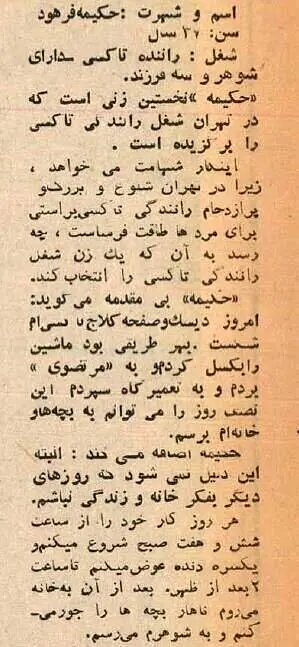 اسم و شهرت : حکیمه فرهود
سن: ۳۷ سال
شغل : راننده تاکسی ـدارای
شوهر و سه فرزند.
«حکیمه» نخستین زنی است که
در تهران شغل رانندگی تاکسی
را برگزیده است .
اینکار شهامت می خواهد ،
زیرا در تهران شلوغ و بزرگ و
پرازدحام رانندگی تاکسی‌براستی
برای مردها طاقت فرساست ، چه
رسد به آن که یک زن شغل
رانندگی تاکسی را انتخاب‌کند.
«حکیمه» بی مقدمه می‌گوید:
امروز دیسک‌وصفحه‌کلاج تاکسی‌ام
شکست . بهر طریقی بود ماشین
رابکسل کردم‌و به «مرتضوی »
بردم و به تعمیرگاه سپردم این
نصف روز را می توانم به بچه‌ها‌و
خانه‌ام برسم.
حکیمه اضافه می کند : البته
این دلیل نمی شود که روزهای
دیگر بفکر خانه و زندگی نباشم.
هر روز کار خود را از ساعت
شش و هفت صبح شروع میکنم‌و
یکسره دنده عوض‌میکنم تاساعت
۲بعد از ظهر. بعد از آن به‌خانه
می‌روم ناهار بچه ها را جورمی‌ـ
کنم و به شوهرم می‌رسم.